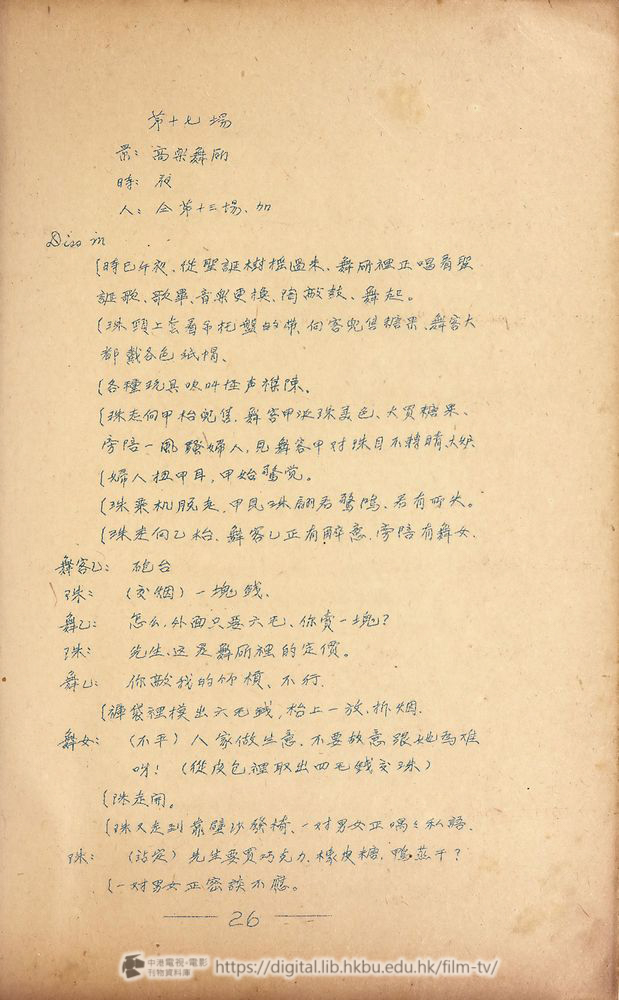 第十七場
景：高樂舞所
時：夜
人：仝第十三場、加
Diss in
{時已午夜、從聖誕樹摇過来、舞所裡正唱着聖
誕歌、歌畢、音樂更换、洞敵鼓、舞起。
{珠頸上套着吊托盤的带、向客兜售糖果、舞客大
都戴各色紙帽、
{各種玩具吹叫怪声襍陳、
{珠走向甲枱兜售、舞客甲涎珠美色、大買糖果、
旁陪一風騷婦人、見舞客甲对珠目不轉睛、大妒
{婦人扭甲耳、甲始驚覚。
{珠乘机脱走、甲見珠翩若驚鴻、若有所失。
{珠走向乙枱、舞客乙正有醉意、旁陪有舞女、
舞客乙：砲台
珠：（交烟）一塊銭、
舞乙：怎么、外面只要六毛、你賣一塊？
珠：先生、这是舞所裡的定價。
舞乙：你敲我的竹槓、不行、
{褲袋裡摸出六毛銭、枱上一放、拆烟、
舞女：（不平）人家做生意、不要故意跟她為难
呀！（從皮包裡取出四毛銭交珠）
{珠走開。
{珠又走到靠壁沙發椅、一对男女正喁々私語、
珠：（站定）先生要買巧克力、橡皮糖、鴨肫干？
{一对男女正密談不應。
26
中港電視·電影
刊物資料庫
https://digital.lib.hkbu.edu.hk/film-tv/